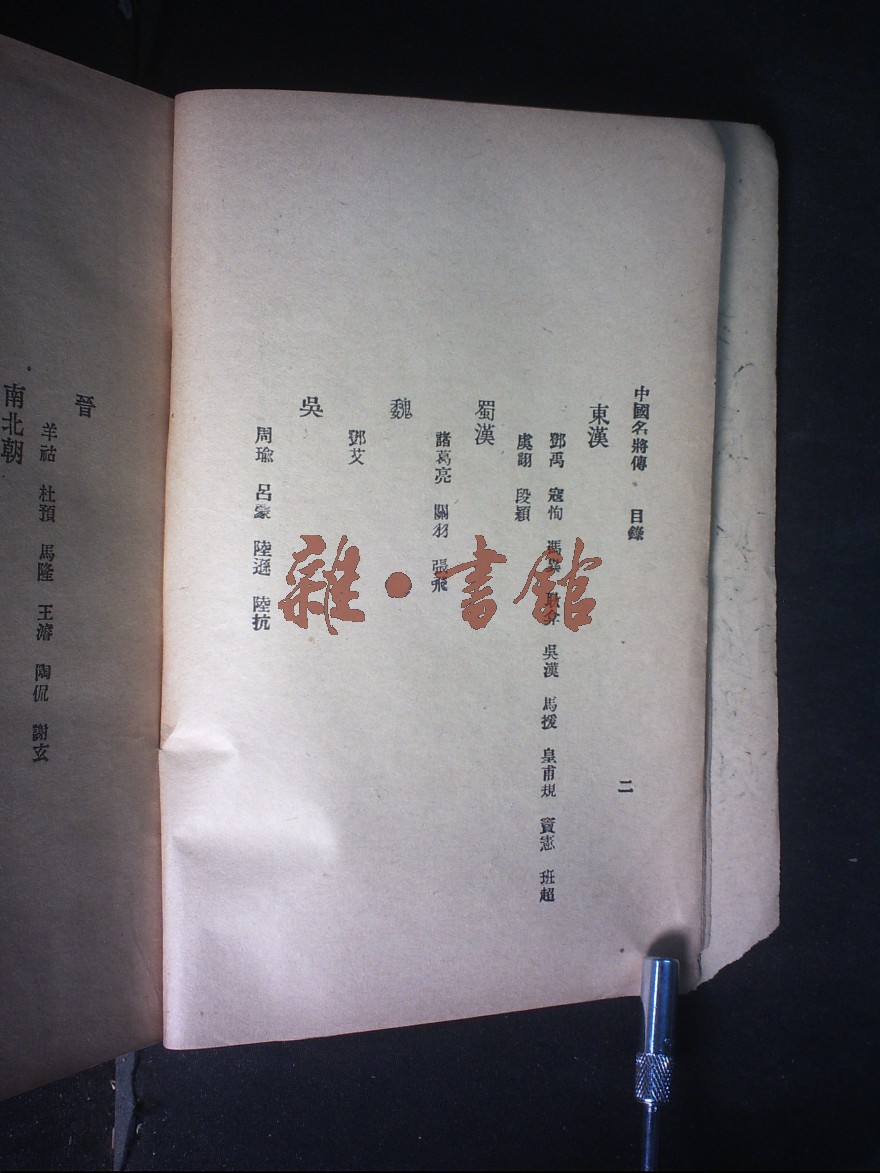 中國名將傳 目錄 二
東漢
鄧禹 寇恂 馮異 耿弇 吳漢 馬援 皇甫規 竇憲 班超
虞詡 段熲
蜀漢
諸葛亮 關羽 張飛
魏
鄧艾
吳
周瑜 呂蒙 陸遜 陸抗
晉
羊祜 杜預 馬隆 王濬 陶侃 謝玄
南北朝
雜·書館